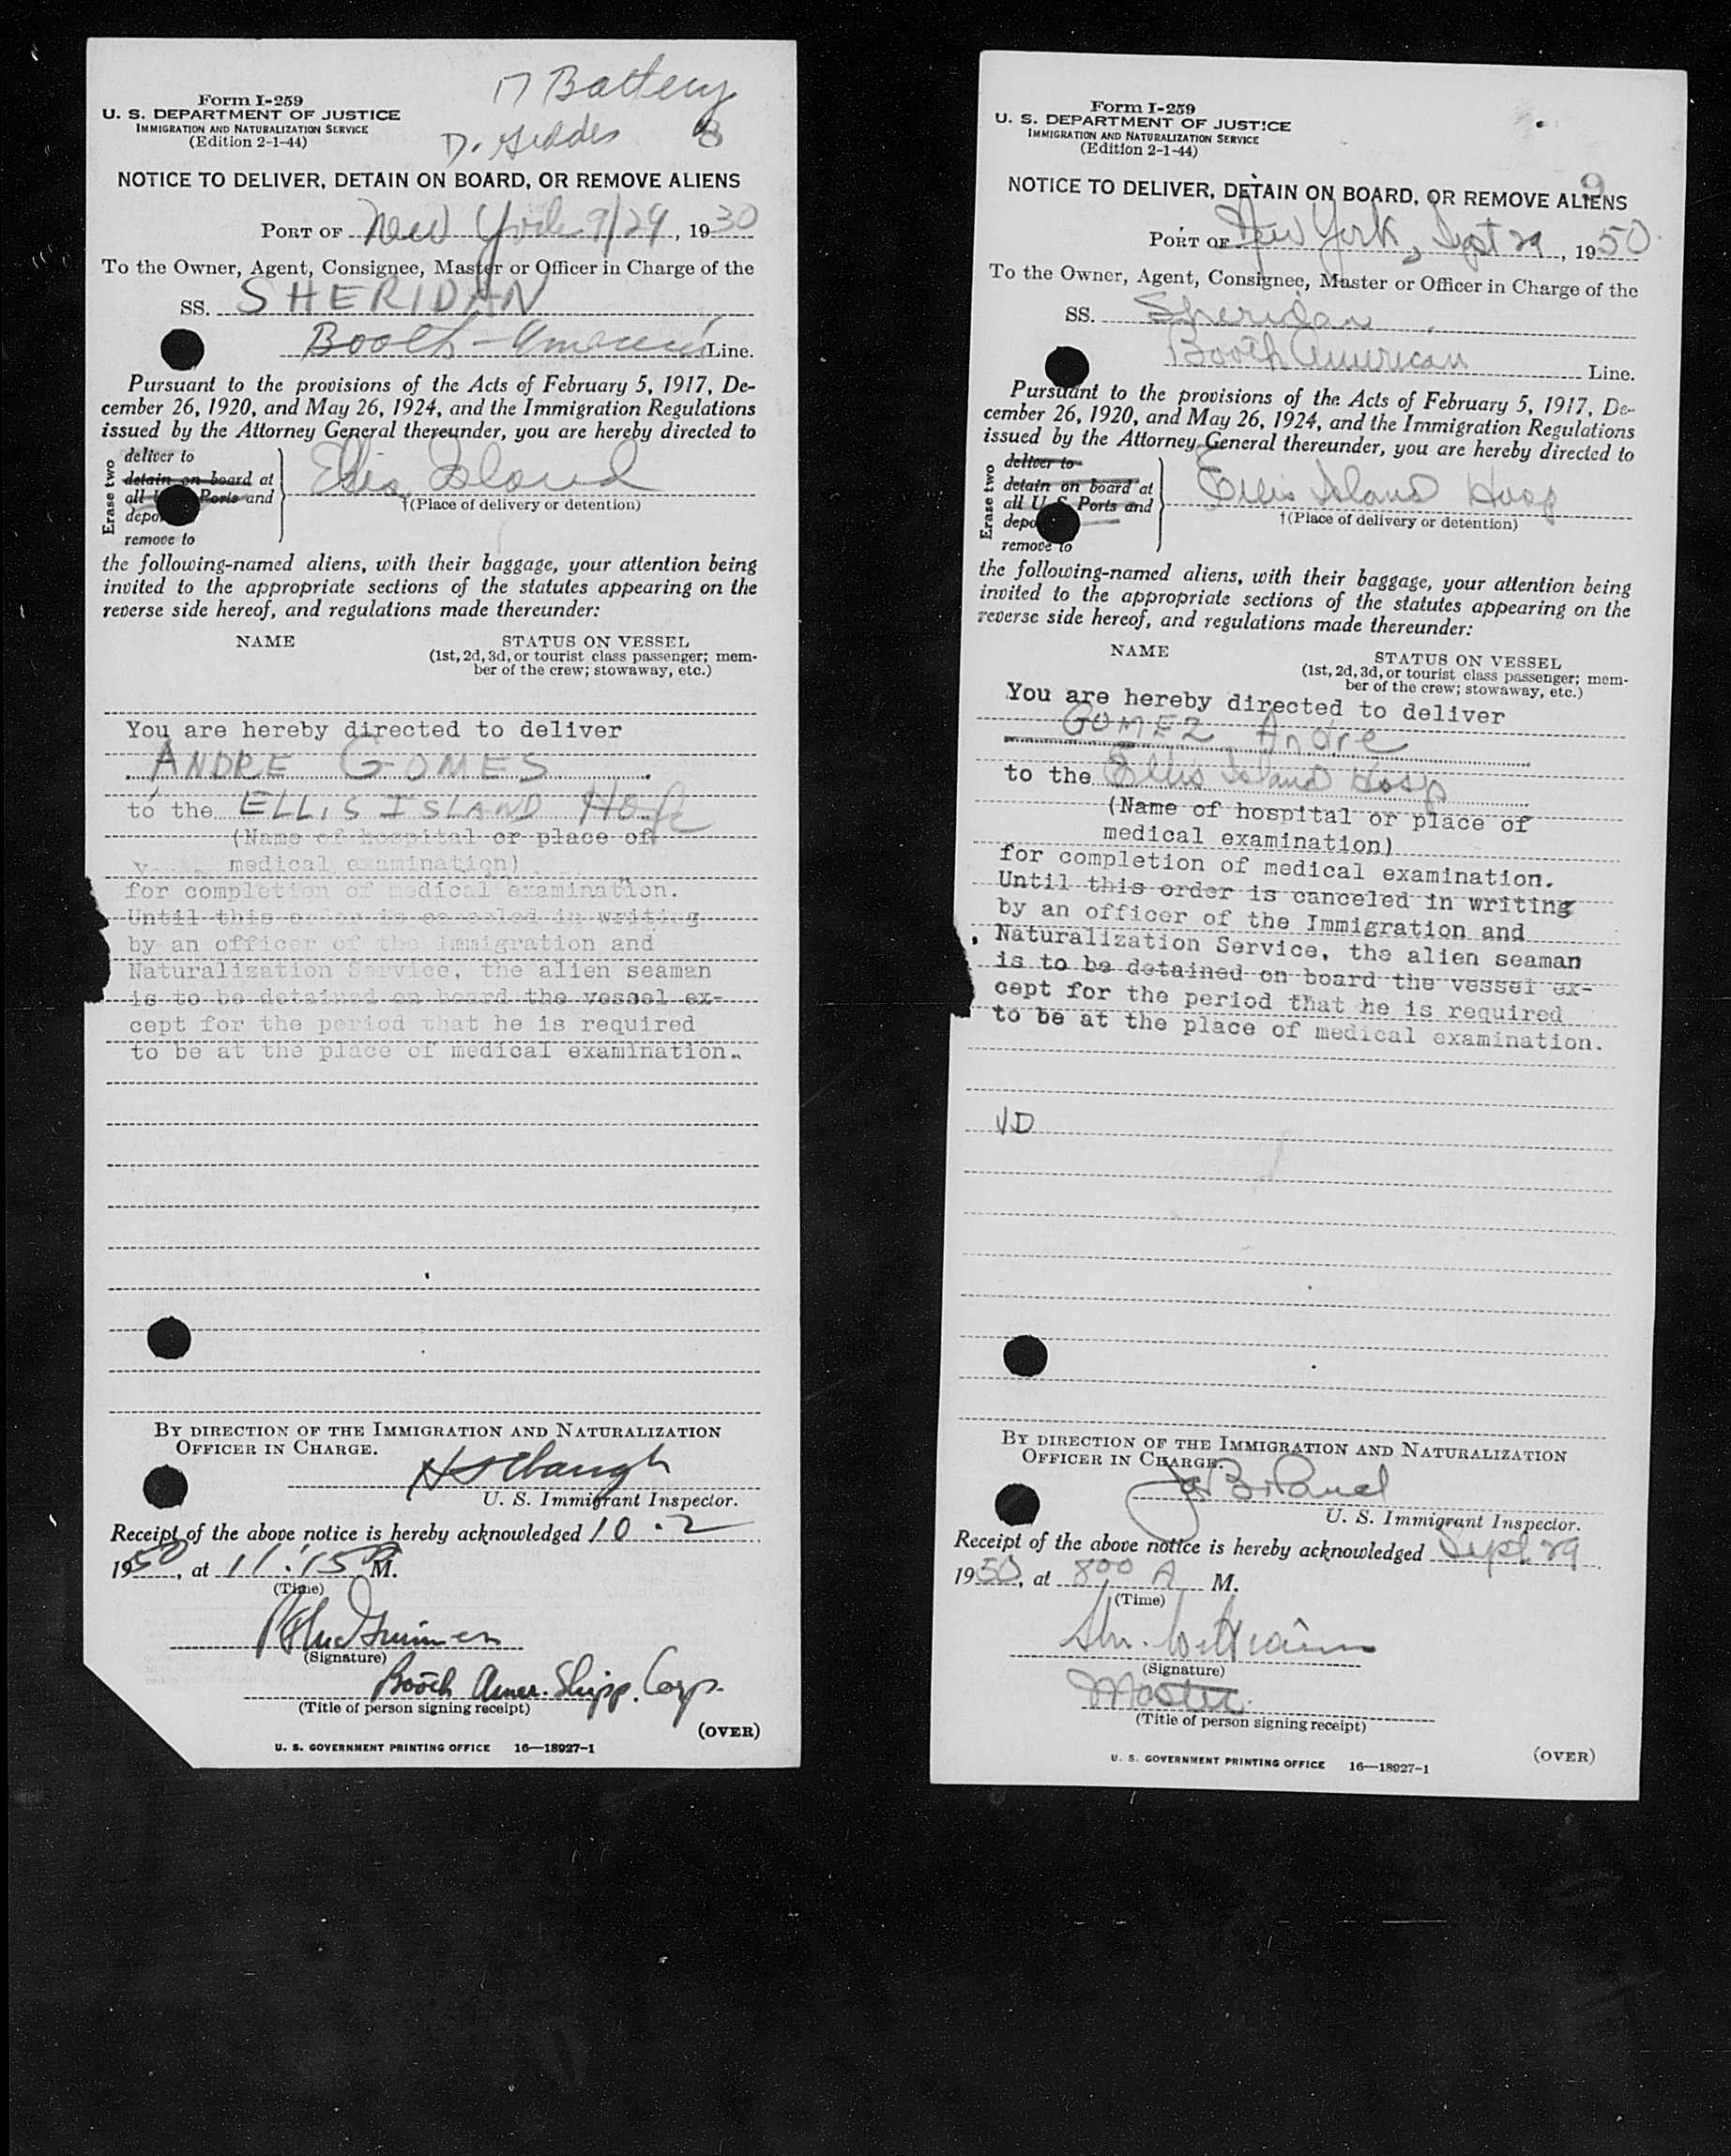 17 Battery
D. Geddes 8
Form I-259
U. S. DEPARTMENT OF JUSTICE
IMMIGRATION AND NATURALIZATION SERVICE
(Edition 2-1-44)
NOTICE TO DELIVER, DETAIN ON BOARD, OR REMOVE ALIENS
PORT OF New York 9/29, 1930
To the Owner, Agent, Consignee, Master or Officer in Charge of the
SS. SHERIDAN
Booth-American Line.
Pursuant to the provisions of the Acts of February 5, 1917, De-
cember 26, 1920, and May 26, 1924, and the Immigration Regulations
issued by the Attorney General thereunder, you are hereby directed to
Erase two
deliver to
detain on board at
all U Ports and
depo
remove to
Ellis Island
†(Place of delivery or detention)
the following-named aliens, with their baggage, your attention being
invited to the appropriate sections of the statutes appearing on the
reverse side hereof, and regulations made thereunder:
NAME STATUS ON VESSEL
(1st, 2d, 3d, or tourist class passenger; mem-
ber of the crew; stowaway, etc.)
You are hereby directed to deliver
ANDRE GOMES
to the ELLIS ISLAND Hosp
(Name of hospital or place of
medical examination)
for completion of medical examination.
Until this order is canceled in writing
by an officer of the Immigration and
Naturalization Service, the alien seaman
is to be detained on board the vessel ex-
cept for the period that he is required
to be at the place of medical examination.
BY DIRECTION OF THE IMMIGRATION AND NATURALIZATION
OFFICER IN CHARGE.
U. S. Immigrant Inspector.
Receipt of the above notice is hereby acknowledged 10.2
1950, at 11:15 A M.
(Time)
(Signature)
Booth Amer. Shipp. Corp.
(Title of person signing receipt)
(OVER)
U. S. GOVERNMENT PRINTING OFFICE 16—18927-1
Form I-259
U. S. DEPARTMENT OF JUSTICE
IMMIGRATION AND NATURALIZATION SERVICE
(Edition 2-1-44)
9
NOTICE TO DELIVER, DETAIN ON BOARD, OR REMOVE ALIENS
PORT OF New York, Sept 29, 1950
To the Owner, Agent, Consignee, Master or Officer in Charge of the
SS. Sheridan
Booth American Line.
Pursuant to the provisions of the Acts of February 5, 1917, De-
cember 26, 1920, and May 26, 1924, and the Immigration Regulations
issued by the Attorney General thereunder, you are hereby directed to
Erase two
deliver to
detain on board at
all U S Ports and
depo
remove to
Ellis Island Hosp
†(Place of delivery or detention)
the following-named aliens, with their baggage, your attention being
invited to the appropriate sections of the statutes appearing on the
reverse side hereof, and regulations made thereunder:
NAME STATUS ON VESSEL
(1st, 2d, 3d, or tourist class passenger; mem-
ber of the crew; stowaway, etc.)
You are hereby directed to deliver
GOMEZ Andre
to the Ellis Island Hosp
(Name of hospital or place of
medical examination)
for completion of medical examination.
Until this order is canceled in writing
by an officer of the Immigration and
Naturalization Service, the alien seaman
is to be detained on board the vessel ex-
cept for the period that he is required
to be at the place of medical examination.
VD
BY DIRECTION OF THE IMMIGRATION AND NATURALIZATION
OFFICER IN CHARGE.
U. S. Immigrant Inspector.
Receipt of the above notice is hereby acknowledged Sept. 29
1950, at 800 A M.
(Time)
Williams
(Signature)
Master
(Title of person signing receipt)
(OVER)
U. S. GOVERNMENT PRINTING OFFICE 16—18927-1